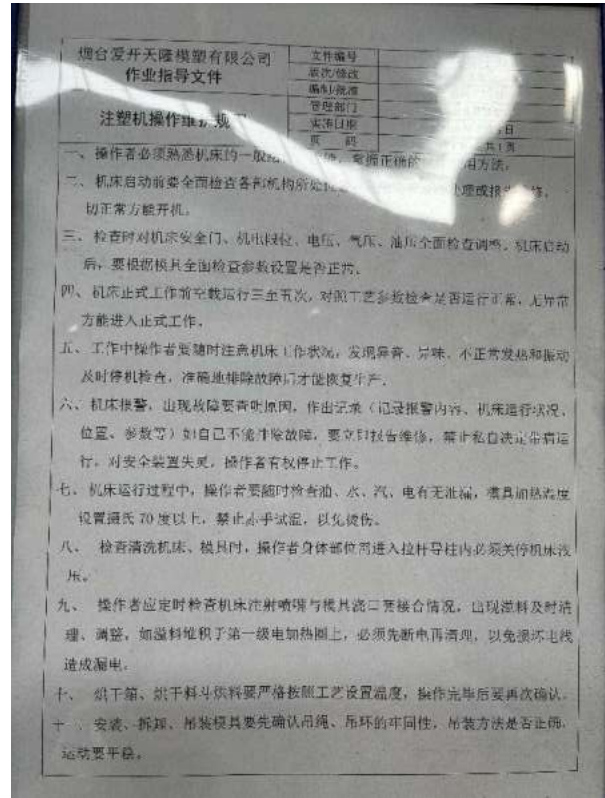 烟台爱开天隆模塑有限公司
作业指导文件
文件编号
版次/修改
编制/批准
管理部门
实施日期
日
页 码
共1页
注塑机操作维护规
一、操作者必须熟悉机床的一般 掌握正确的 用方法。
二、机床启动前要全面检查各部机构所处 处理或报 修,
切正常方能开机。
三、检查时对机床安全门、机电限位、电压、气压、油压全面检查调整。机床启动
后,要根据模具全面检查参数设置是否正常。
四、机床正式工作前空载运行三至五次,对照工艺参数检查是否运行正常,无异常
方能进入正式工作。
五、工作中操作者要随时注意机床工作状况,发现异音、异味、不正常发热和振动
及时停机检查,准确地排除故障后才能恢复生产。
六、机床报警,出现故障要查明原因,作出记录(记录报警内容、机床运行状况、
位置、参数等)如自己不能排除故障,要立即报告维修,禁止私自决定带病运
行。对安全装置失灵,操作者有权停止工作。
七、机床运行过程中,操作者要随时检查油、水、汽、电有无泄漏,模具加热温度
设置摄氏70度以上,禁止赤手试温,以免烫伤。
八、 检查清洗机床、模具时,操作者身体部位需进入拉杆导柱内必须关停机床液
压。
九、 操作者应定时检查机床注射喷嘴与模具浇口套接合情况,出现溢料及时清
理、调整,如溢料堆积于第一级电加热圈上,必须先断电再清理,以免损坏电线
造成漏电。
十、 烘干箱、烘干料斗烘料要严格按照工艺设置温度,操作完毕后要再次确认。
十一、安装、拆卸、吊装模具要先确认吊绳、吊环的牢固性,吊装方法是否正确,
运动要平稳。